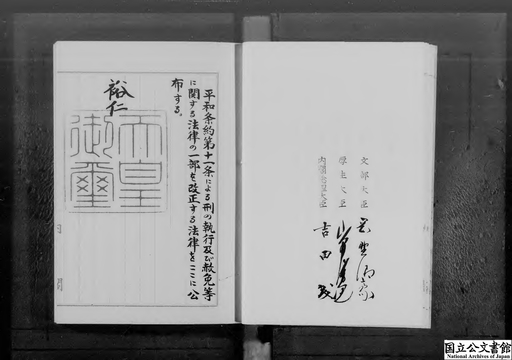 文部大臣
厚生大臣
内閣総理大臣
吉田茂
平和条約第十一条による刑の執行及び赦免等
に関する法律の一部を改正する法律をここに公
布する。
裕仁
天皇
御璽
国立公文書館
National Archives of Japan